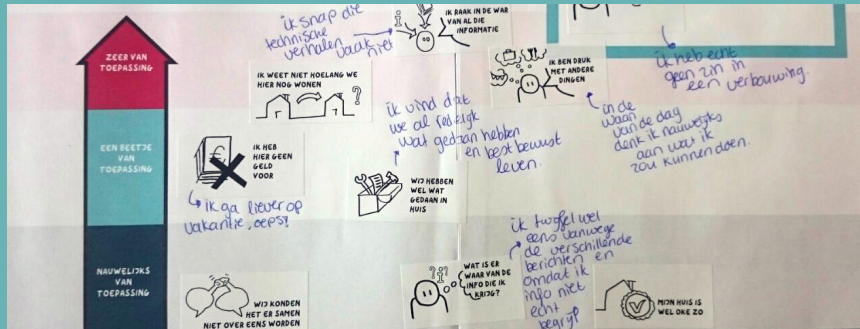 ZEER VAN
TOEPASSING
EEN BEETJE
VAN
TOEPASSING
NAUWELIJKS
VAN
TOEPASSING
ik snap die
technische
verhalen vaak
niet
IK RAAK IN DE WAR
VAN AL DIE
INFORMATIE
IK WEET NIET HOELANG WE
HIER NOG WONEN
IK BEN DRUK
MET ANDERE
DINGEN
ik heb echt
geen zin in
een verbouwing.
in de
waan
van de dag
denk ik nauwelijks
aan wat ik
zou kunnen doen.
ik vind dat
we al redelijk
wat gedaan hebben
en best bewust
leven.
IK HEB
HIER GEEN
GELD
VOOR
ik ga liever op
vakantie, oeps!
WIJ HEBBEN
WEL WAT
GEDAAN IN
HUIS
WIJ KONDEN
HET ER SAMEN
NIET OVER EENS WORDEN
WAT IS ER
WAAR VAN DE
INFO DIE IK
KRIJG?
ik twijfel wel
eens vanwege
de verschillende
berichten en
omdat ik
info niet
echt
begrijp
MIJN HUIS IS
WEL OKE ZO